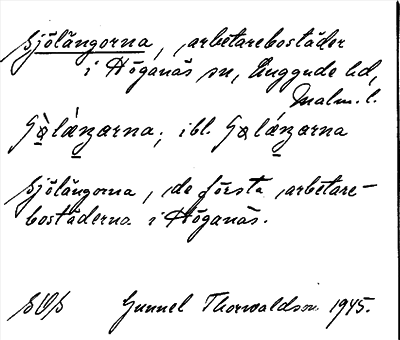 Sjölängorna, arbetarebostäder
i Höganäs sn, Luggude hd,
Malm. l.
; ibl.
Sjölängorna, de första arbetare-
bostäderna i Höganäs.
SOS Gunnel Thorwaldson 1945.